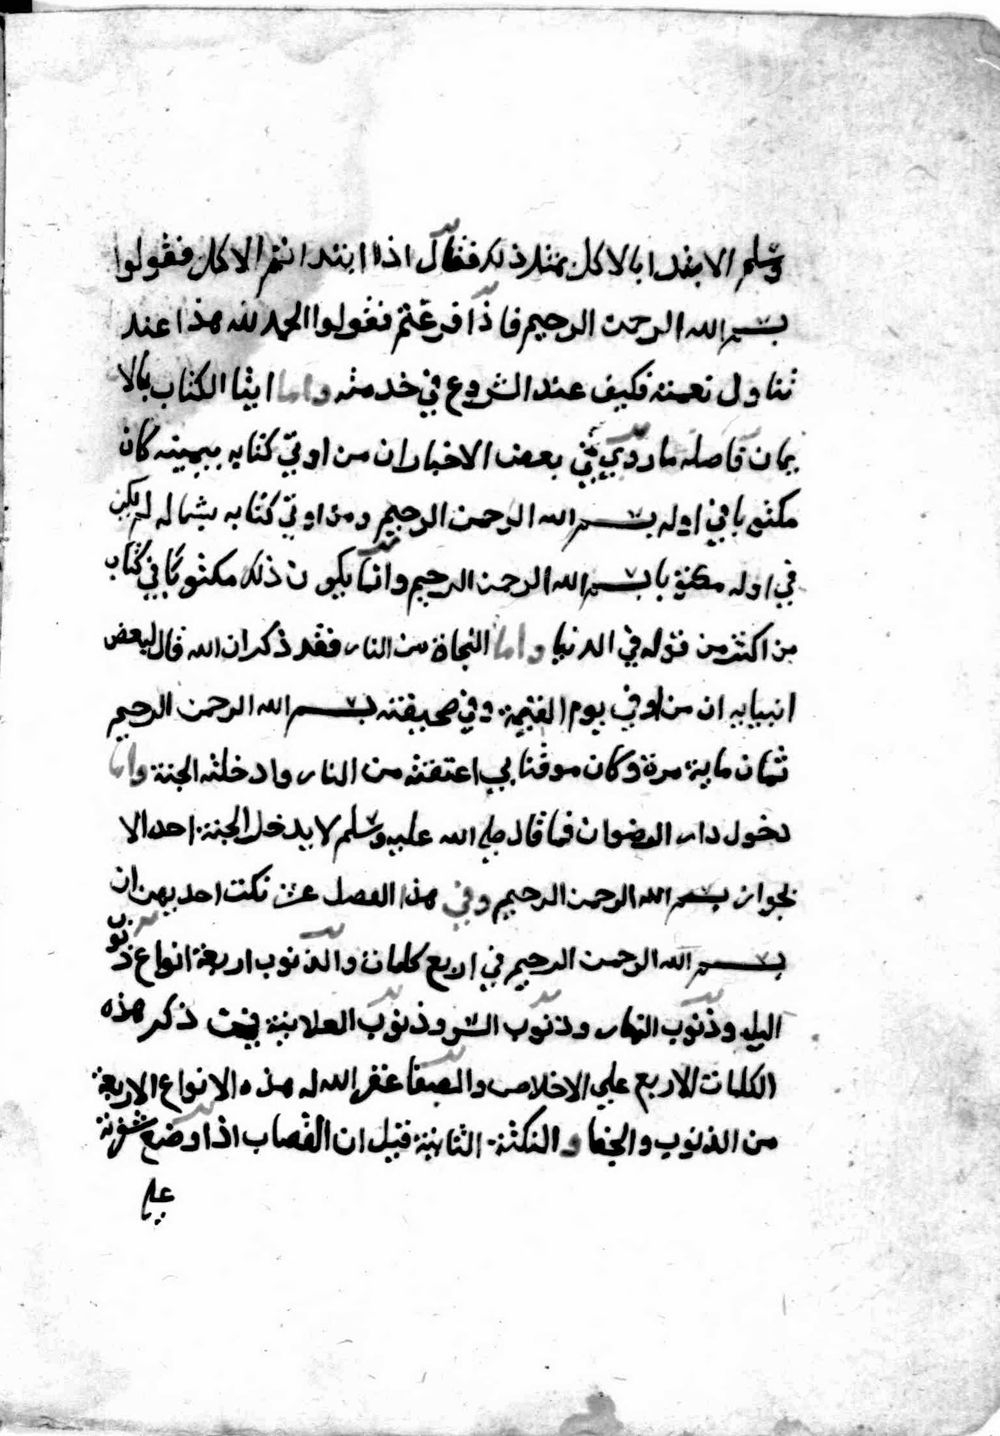 وسلم الابتدا بالاكل بمثل ذلك فقال اذا ابتداتم الاكل فقولوا
بسم الله الرحمن الرحيم فاذا فرغتم فقولوا الحمد لله هذا عند
تناول نعمته فكيف عند الشروع في خدمته واما ايتا الكتاب بالا
يمان فاصله ما روي في بعض الاخبار ان من اوتي كتابه بيمينه كان
مكتوبا في اوله بسم الله الرحمن الرحيم ومن اوتي كتابه بشماله لم يكن
في اوله مكتوبا بسم الله الرحمن الرحيم وانما يكون ذلك مكتوبا في كتاب
من اكثر من قوله في الدنيا واما النجاة من النار فقد ذكر ان الله قال لبعض
انبيايه ان من اوفي يوم القيمة وفي صحيفته بسم الله الرحمن الرحيم
ثمان ماية مرة وكان موقنا بي اعتقته من النار وادخلته الجنة واما
دخول دار الرضوان فما قال صلي الله عليه وسلم لا يدخل الجنة احد الا
بجواز بسم الله الرحمن الرحيم وفي هذا الفصل نكت احديهن ان
بسم الله الرحمن الرحيم في اربع كلمات والذنوب اربعة انواع ذنوب
اليل وذنوب النهار وذنوب السر وذنوب العلانية فمن ذكر هذه
الكلمات الاربع علي الاخلاص والصفا غفر الله له هذه الانواع الاربعة
من الذنوب والجفا والنكتة الثانية قيل ان القصاب اذا وضع شفرته
علي